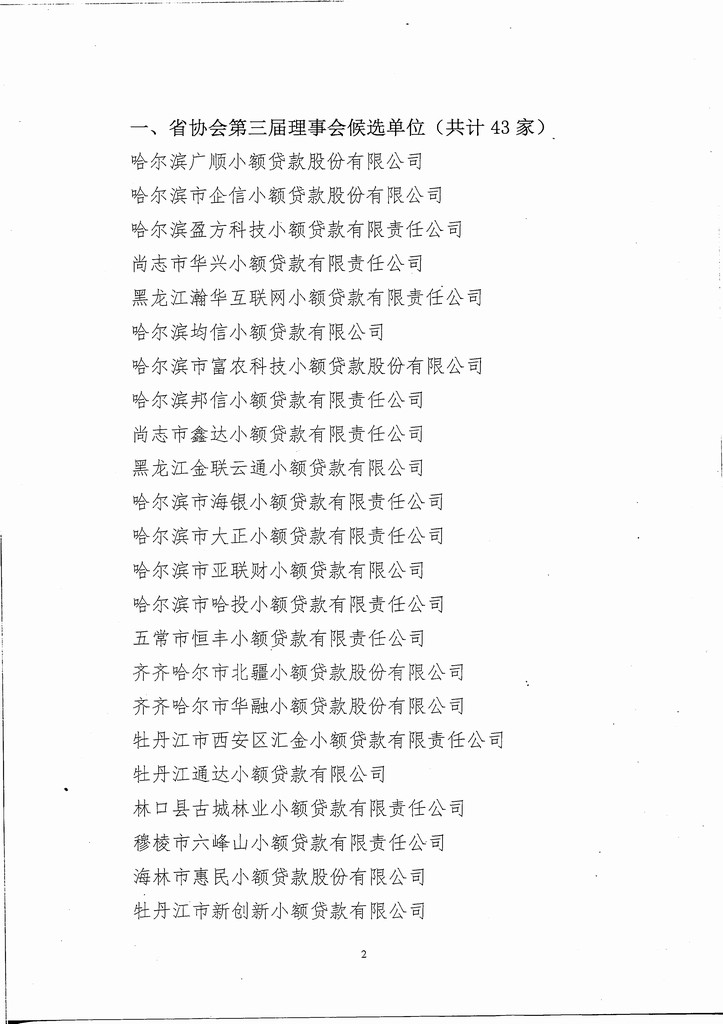 一、省协会第三届理事会候选单位（共计 43 家）
哈尔滨广顺小额贷款股份有限公司
哈尔滨市企信小额贷款股份有限公司
哈尔滨盈方科技小额贷款有限责任公司
尚志市华兴小额贷款有限责任公司
黑龙江瀚华互联网小额贷款有限责任公司
哈尔滨均信小额贷款有限公司
哈尔滨市富农科技小额贷款股份有限公司
哈尔滨邦信小额贷款有限责任公司
尚志市鑫达小额贷款有限责任公司
黑龙江金联云通小额贷款有限公司
哈尔滨市海银小额贷款有限责任公司
哈尔滨市大正小额贷款有限责任公司
哈尔滨市亚联财小额贷款有限公司
哈尔滨市哈投小额贷款有限责任公司
五常市恒丰小额贷款有限责任公司
齐齐哈尔市北疆小额贷款股份有限公司
齐齐哈尔市华融小额贷款股份有限公司
牡丹江市西安区汇金小额贷款有限责任公司
牡丹江通达小额贷款有限公司
林口县古城林业小额贷款有限责任公司
穆棱市六峰山小额贷款有限责任公司
海林市惠民小额贷款股份有限公司
牡丹江市新创新小额贷款有限公司
2